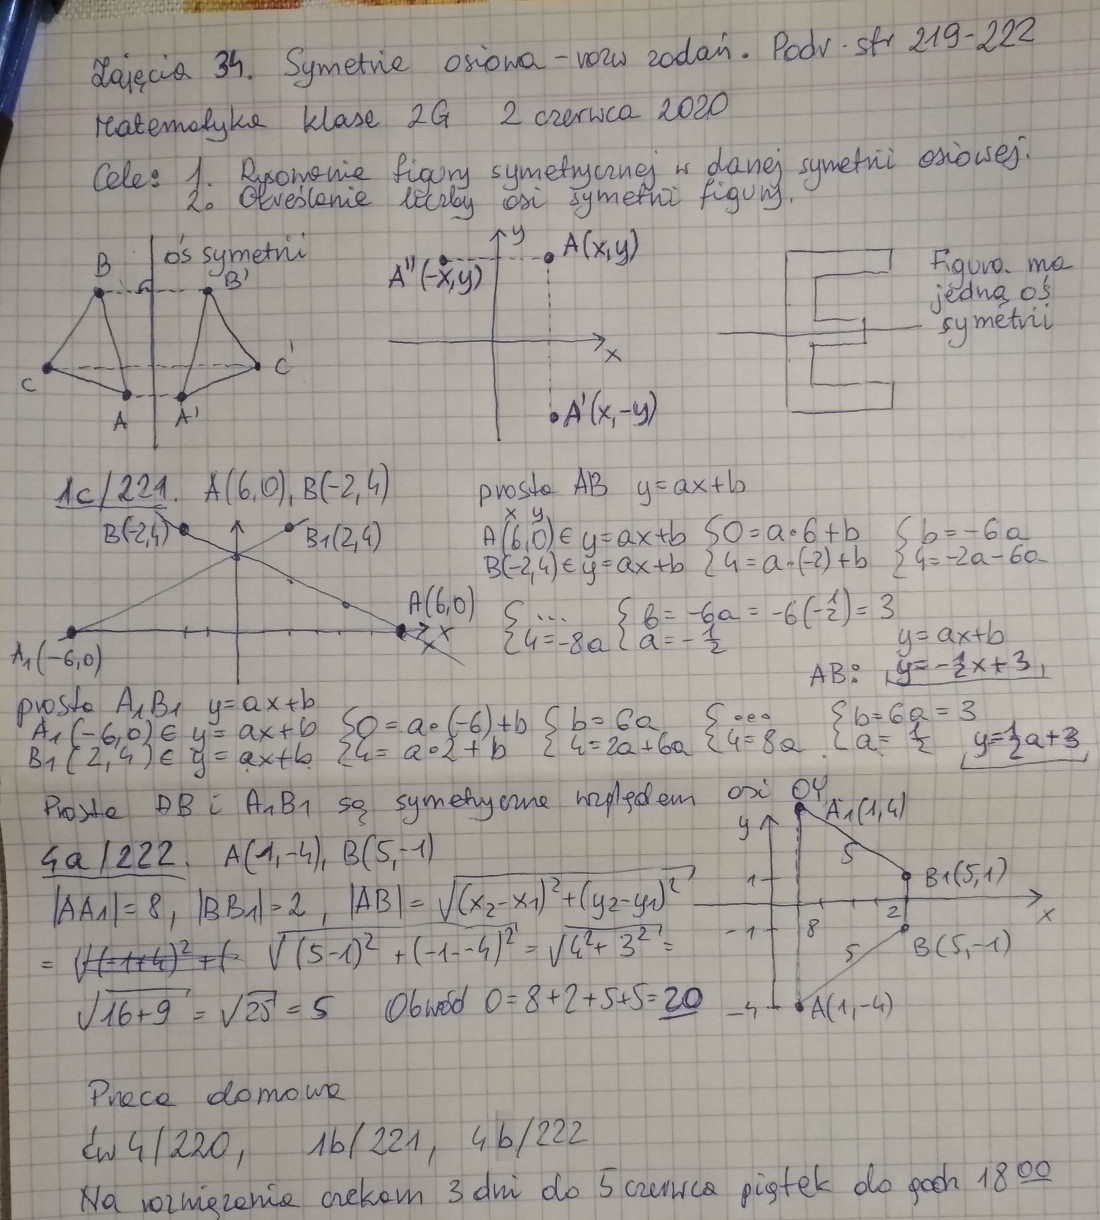 Zajęcia 34. Symetrie osiowa - rozw zadań. Podr. str 219-222
Matematyka klasa 2G 2 czerwca 2020
Cele: 1. Rysowanie figury symetrycznej w danej symetrii osiowej.
2. Określanie liczby osi symetrii figury.
oś symetrii
B B'
C C'
A A'
y
A(x,y)
A''(-x,y)
x
A'(x,-y)
Figura ma
jedną oś
symetrii
1c/221. A(6,0), B(-2,4)
B(-2,4) B1(2,4)
A(6,0)
x
x
A1(-6,0)
prosta AB y=ax+b
x y
A(6,0) ∈ y=ax+b {0=a·6+b {b=-6a
B(-2,4) ∈ y=ax+b {4=a·(-2)+b {4=-2a-6a
{... {b=-6a=-6(-1/2)=3
{4=-8a {a=-1/2
y=ax+b
AB: y=-1/2x+3
prosta A1B1 y=ax+b
A1(-6,0) ∈ y=ax+b {0=a·(-6)+b {b=6a {... {b=6a=3
B1(2,4) ∈ y=ax+b {4=a·2+b {4=2a+6a {4=8a {a=1/2 y=1/2a+3
Proste AB i A1B1 są symetryczne względem osi OY
4a/222. A(1,-4), B(5,-1)
|AA1|=8, |BB1|=2, |AB|=√((x2-x1)²+(y2-y1)²)
= √((5-1)²+(-1--4)²)=√(4²+3²)=
√(16+9)=√25=5 Obwód O=8+2+5+5=20
y
A1(1,4)
5
B1(5,1)
1
x
-1 8 2
5
B(5,-1)
-4
A(1,-4)
Praca domowa
ćw 4/220, 1b/221, 4b/222
Na rozwiązania czekam 3 dni do 5 czerwca piątek do godz 18 00